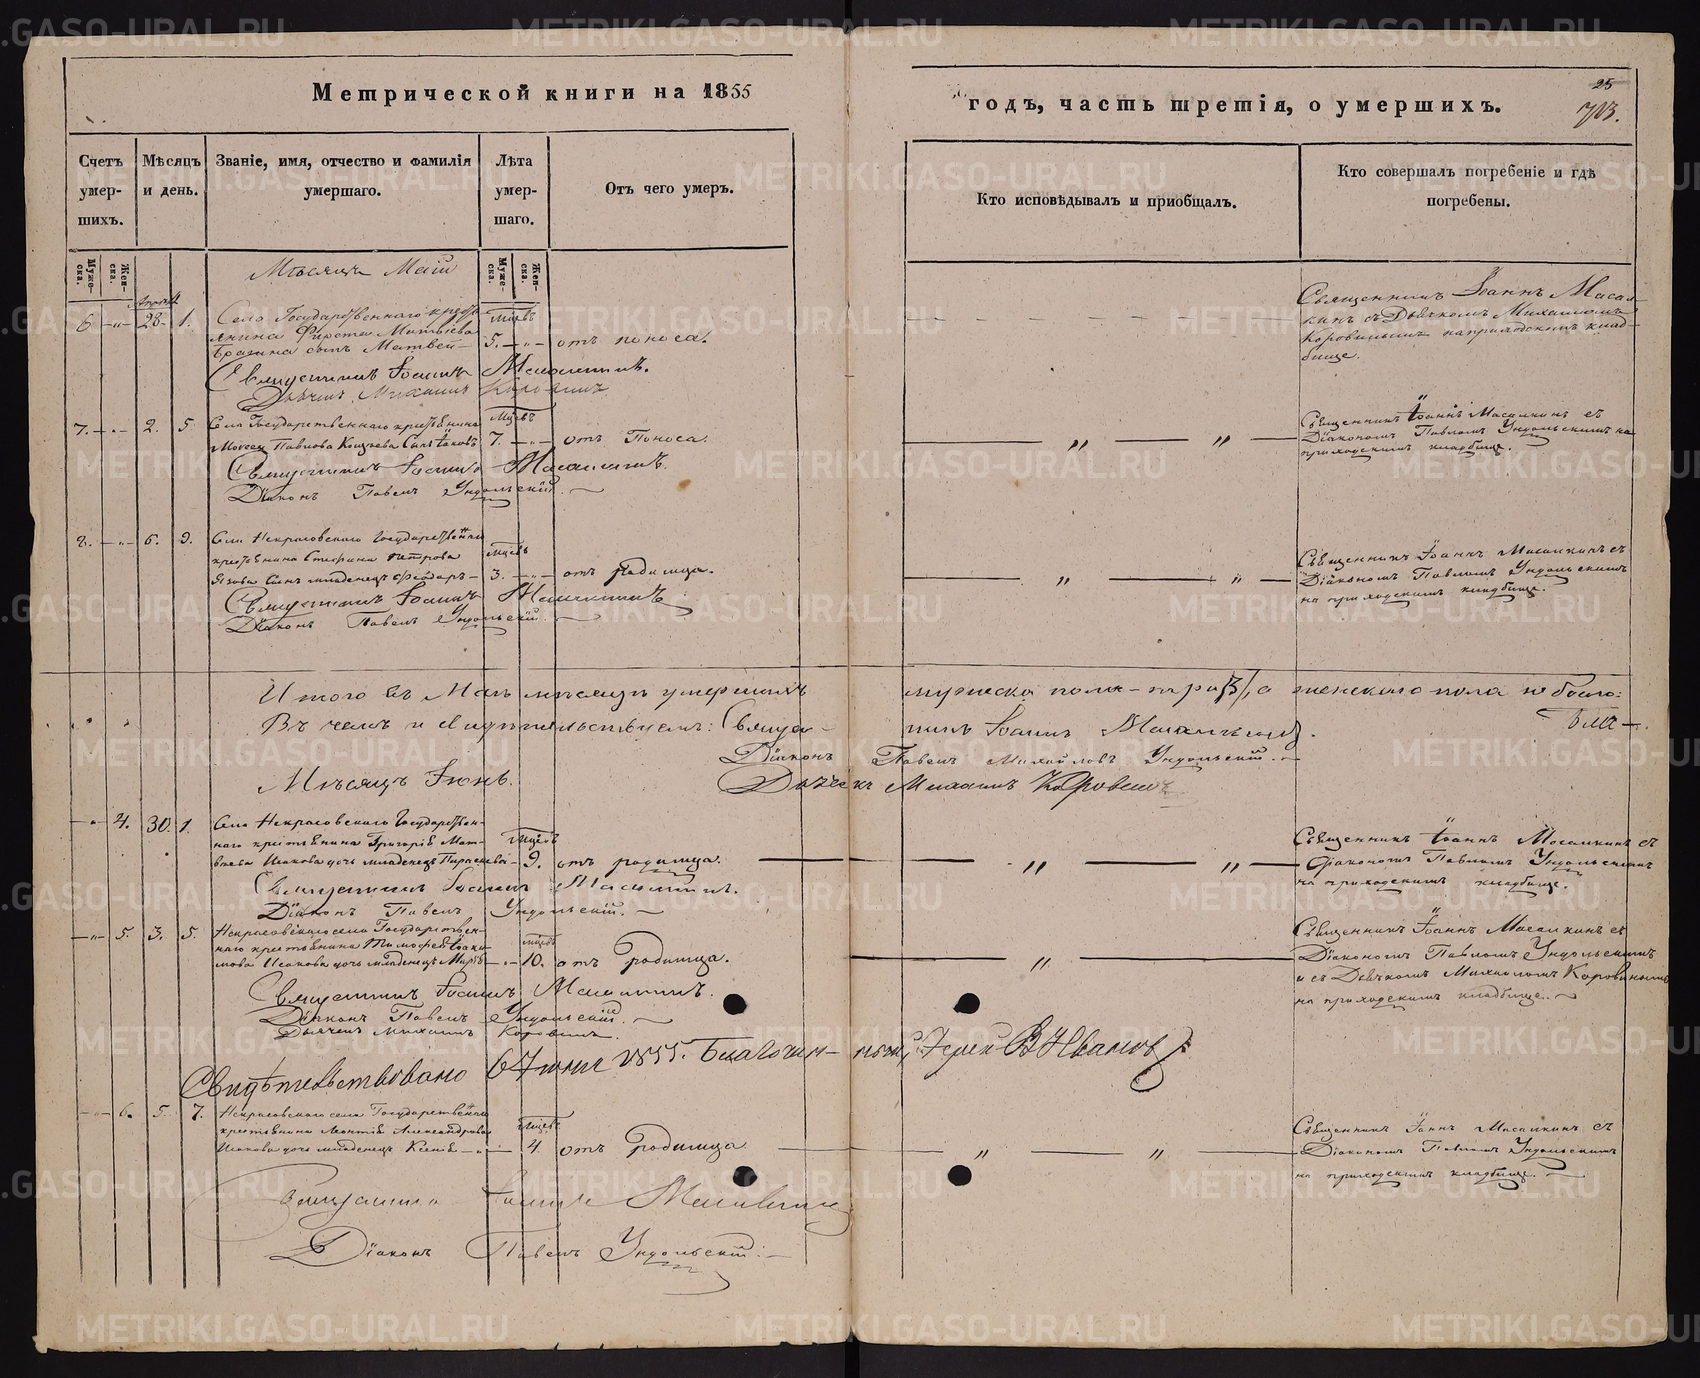 Метрической книги на 1855
годъ, часть третія, о умершихъ.
25
713.
Счетъ умер-шихъ.
Мѣсяцъ и день.
Званіе, имя, отчество и фамилія умершаго.
Лѣта умер-шаго.
Отъ чего умеръ.
Кто исповѣдывалъ и пріобщалъ.
Кто совершалъ погребеніе и гдѣ погребены.
Муже-ска.
Жен-ска.
Муже-ска.
Жен-ска.
Мѣсяцъ Маій
6 28 1.
Села Государственнаго кресть-
янина
Брагина сынъ Матвей
5.
отъ поноса.
Священникъ Іоаннъ Масал-
кинъ съ Дьячкомъ Михаиломъ
Коровинымъ на приходскомъ клад-
бище.
Священникъ Іоаннъ Масалкинъ.
Дьячекъ Михаилъ Коровинъ
7. 2. 5.
Села Государственнаго крестьянина
Моѵсея Павлова сынъ Іаковъ
7.
отъ Поноса.
Священникъ Іоаннъ Масалкинъ съ
Діакономъ Павломъ Ундольскимъ на
приходскомъ кладбище.
Священникъ Іоаннъ Масалкинъ.
Діаконъ Павелъ Ундольскій.
8. 6. 9.
Села Некрасовскаго Государственнаго
крестьянина Стефана Петрова
сынъ младенецъ Ѳеодоръ
3.
отъ Родимца.
Священникъ Іоаннъ Масалкинъ съ
Діакономъ Павломъ Ундольскимъ
на приходскомъ кладбище.
Священникъ Іоаннъ Масалкинъ
Діаконъ Павелъ Ундольскій.
Итого въ Маѣ мѣсяцѣ умершихъ мужеска пола три /3/, а женскаго пола не было:
Въ чемъ и свидѣтельствуемъ: Священникъ Іоаннъ Масалкинъ.
Діаконъ Павелъ Михайловъ Ундольскій.
Дьячекъ Михаилъ Коровинъ
Мѣсяцъ Іюнь.
4. 30. 1.
Села Некрасовскаго Государствен-
наго крестьянина Григорія Мат-
вѣева Исакова дочь младенецъ Параскева
9.
отъ родимца.
Священникъ Іоаннъ Масалкинъ съ
Діакономъ Павломъ Ундольскимъ
на приходскомъ кладбище.
Священникъ Іоаннъ Масалкинъ.
Діаконъ Павелъ Ундольскій.
5. 3. 5.
Некрасовскаго села Государствен-
наго крестьянина Тимофея Іоаки-
мова Исакова дочь младенецъ
10.
отъ Родимца.
Священникъ Іоаннъ Масалкинъ съ
Діакономъ Павломъ Ундольскимъ
и съ Дьячкомъ Михаиломъ Коровинымъ
на приходскомъ кладбище.
Священникъ Іоаннъ Масалкинъ.
Діаконъ Павелъ Ундольскій.
Дьячекъ Михаилъ Коровинъ.
Свидѣтельствовано 6 Іюня 1855. Благочинный, Іерей В Ивановъ
6. 5. 7.
Некрасовскаго села Государственнаго
крестьянина Леонтія Александрова
Исакова дочь младенецъ Ксенія
4
отъ Родимца
Священникъ Іоаннъ Масалкинъ съ
Діакономъ Павломъ Ундольскимъ
на приходскомъ кладбище.
Священникъ Іоаннъ Масалкинъ
Діаконъ Павелъ Ундольскій.
METRIKI.GASO-URAL.RU